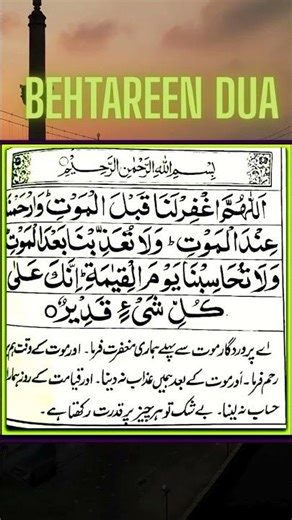 BEHTAREEN DUA
بِسْمِ اللهِ الرَّحْمٰنِ الرَّحِيْمِ
اَللّٰهُمَّ اغْفِرْلَنَا قَبْلَ الْمَوْتِ ؕ وَارْحَمْنَا
عِنْدَ الْمَوْتِ ؕ وَلَا تُعَذِّبْنَا بَعْدَ الْمَوْتِ
وَلَا تُحَاسِبْنَا يَوْمَ الْقِيٰمَةِ ؕ اِنَّكَ عَلٰى
كُلِّ شَيْءٍ قَدِيْرٌ
اے پروردگار موت سے پہلے ہماری مغفرت فرما۔ اور موت کے وقت ہم
رحم فرما۔ اور موت کے بعد ہمیں عذاب نہ دینا۔ اور قیامت کے روز ہمارا
حساب نہ لینا۔ بے شک تو ہر چیز پر قدرت رکھتا ہے۔